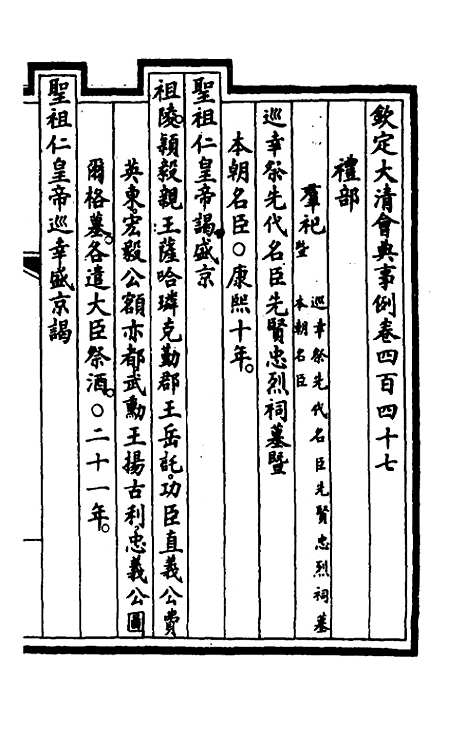 欽定大清會典事例卷四百四十七
禮部
羣祀暨 巡幸祭先代名臣先賢忠烈祠墓
本朝名臣
巡幸祭先代名臣先賢忠烈祠墓暨
本朝名臣○康熙十年。
聖祖仁皇帝謁盛京
祖陵。穎毅親王薩哈璘克勤郡王岳託。功臣直義公費
英東。宏毅公額亦都武勳王揚古利。忠義公圖
爾格墓。各遣大臣祭酒。○二十一年。
聖祖仁皇帝巡幸盛京謁